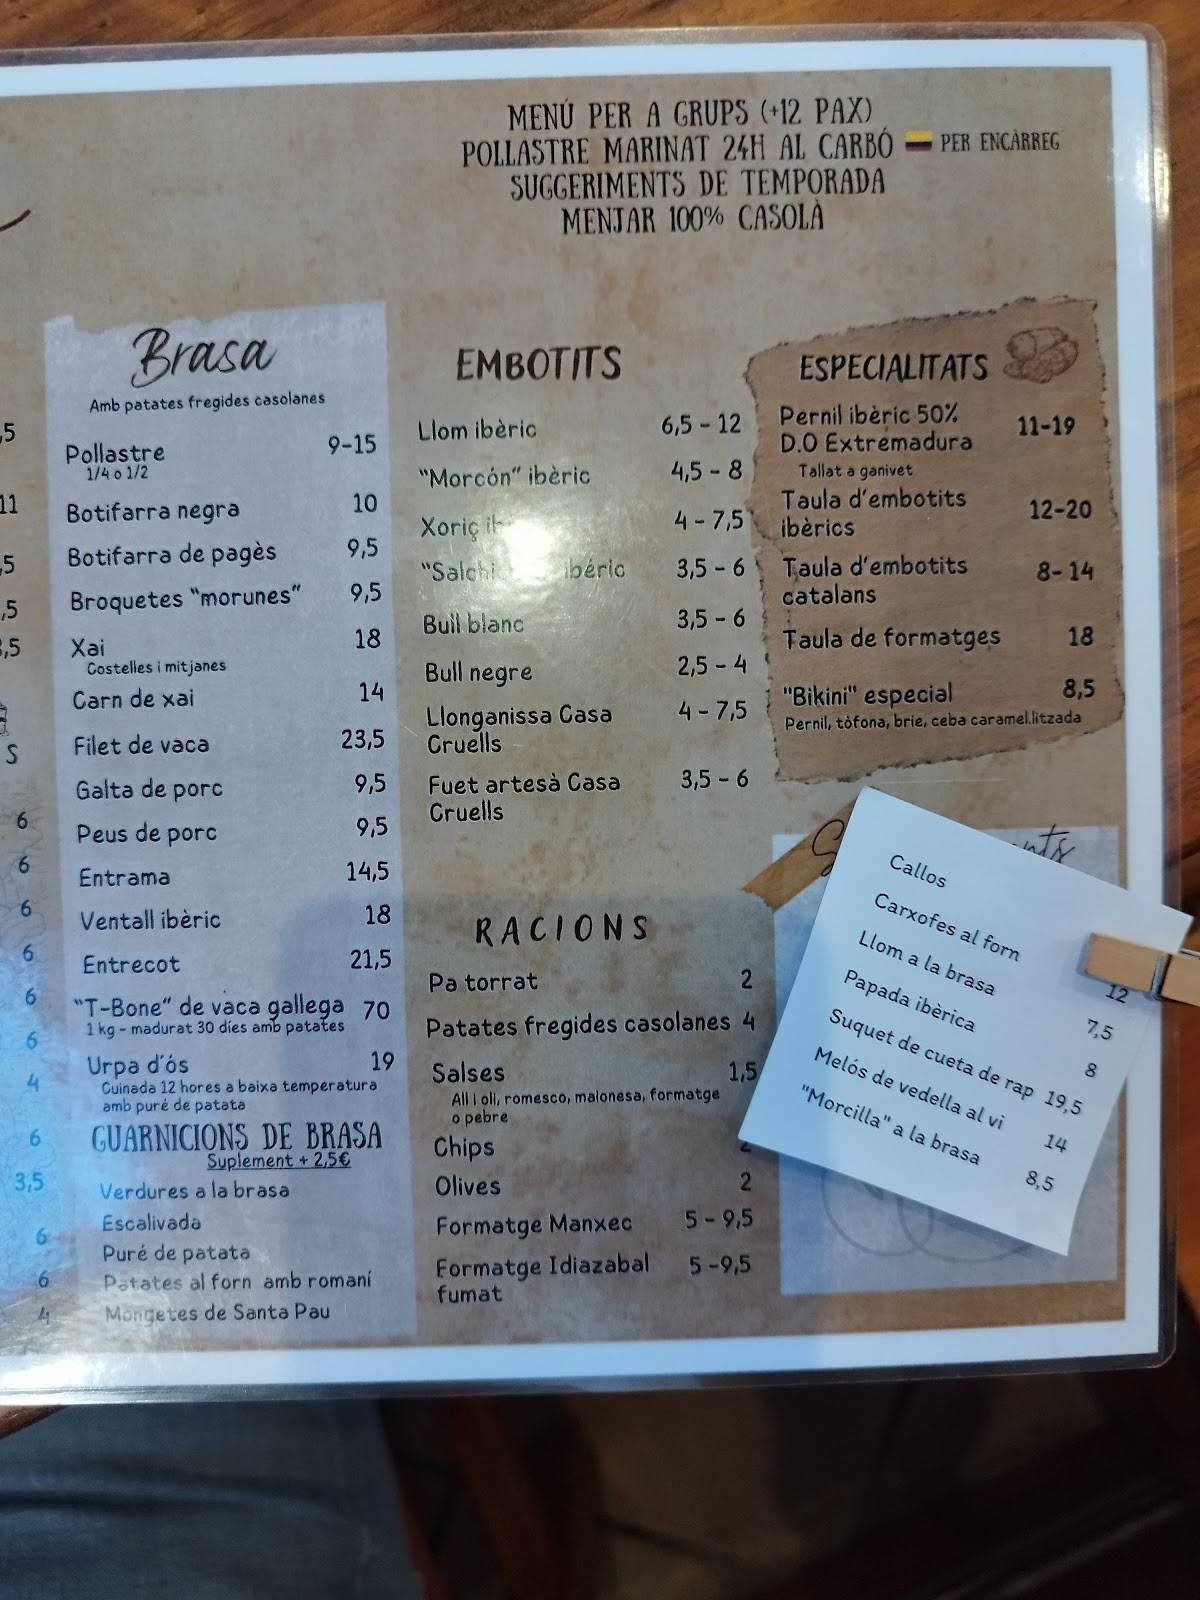 MENÚ PER A GRUPS (+12 PAX)
POLLASTRE MARINAT 24H AL CARBÓ PER ENCÀRREG
SUGGERIMENTS DE TEMPORADA
MENJAR 100% CASOLÀ
,5
11
,5
,5
,5
S
6
6
6
6
6
6
4
6
3,5
6
6
4
Brasa
Amb patates fregides casolanes
Pollastre 9-15
1/4 o 1/2
Botifarra negra 10
Botifarra de pagès 9,5
Broquetes "morunes" 9,5
Xai 18
Costelles i mitjanes
Carn de xai 14
Filet de vaca 23,5
Galta de porc 9,5
Peus de porc 9,5
Entrama 14,5
Ventall ibèric 18
Entrecot 21,5
"T-Bone" de vaca gallega 70
1 kg - madurat 30 díes amb patates
Urpa d'ós 19
Cuinada 12 hores a baixa temperatura
amb puré de patata
GUARNICIONS DE BRASA
Suplement + 2,5€
Verdures a la brasa
Escalivada
Puré de patata
Patates al forn amb romaní
Mongetes de Santa Pau
EMBOTITS
Llom ibèric 6,5 - 12
"Morcón" ibèric 4,5 - 8
Xoriç 4 - 7,5
ibéric 3,5 - 6
Bull blanc 3,5 - 6
Bull negre 2,5 - 4
Llonganissa Casa 4 - 7,5
Cruells
Fuet artesà Casa 3,5 - 6
Cruells
RACIONS
Pa torrat 2
Patates fregides casolanes 4
Salses 1,5
All i oli, romesco, maionesa, formatge
o pebre
Chips
Olives 2
Formatge Manxec 5 - 9,5
Formatge Idiazabal 5 -9,5
fumat
ESPECIALITATS
Pernil ibèric 50% 11-19
D.O Extremadura
Tallat a ganivet
Taula d'embotits 12-20
ibèrics
Taula d'embotits 8- 14
catalans
Taula de formatges 18
"Bikini" especial 8,5
Pernil, tòfona, brie, ceba caramel.litzada
Callos
Carxofes al forn
Llom a la brasa 12
Papada ibèrica 7,5
Suquet de cueta de rap 8
Melós de vedella al vi 19,5
"Morcilla" a la brasa 14
8,5